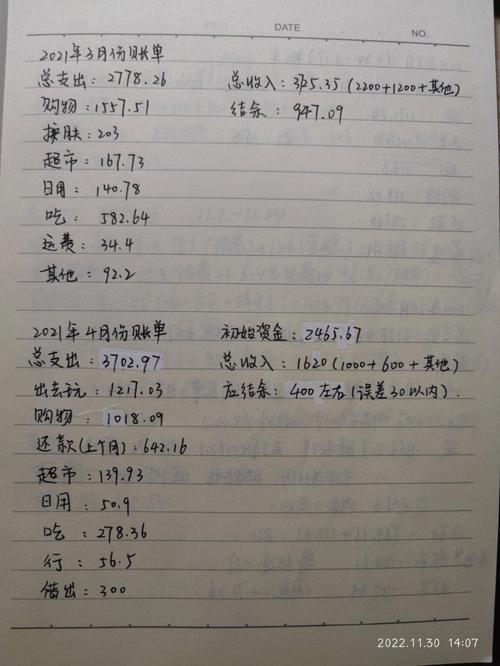 DATE
NO.
2021年3月份账单
总支出：2778.26 总收入：3725.35（2200+1200+其他）
购物：1557.51 结余：947.09
护肤：203
超市：167.73
日用：140.78
吃：582.64
运费：34.4
其他：92.2
2021年4月份账单 初始资金：2465.67
总支出：3702.97 总收入：1620（1000+600+其他）
出去玩：1217.03 应结余：400左右（误差30以内）.
购物：1018.09
还款（上个月）：642.16
超市：139.93
日用：50.9
吃：278.36
行：56.5
借出：300
2022.11.30 14:07